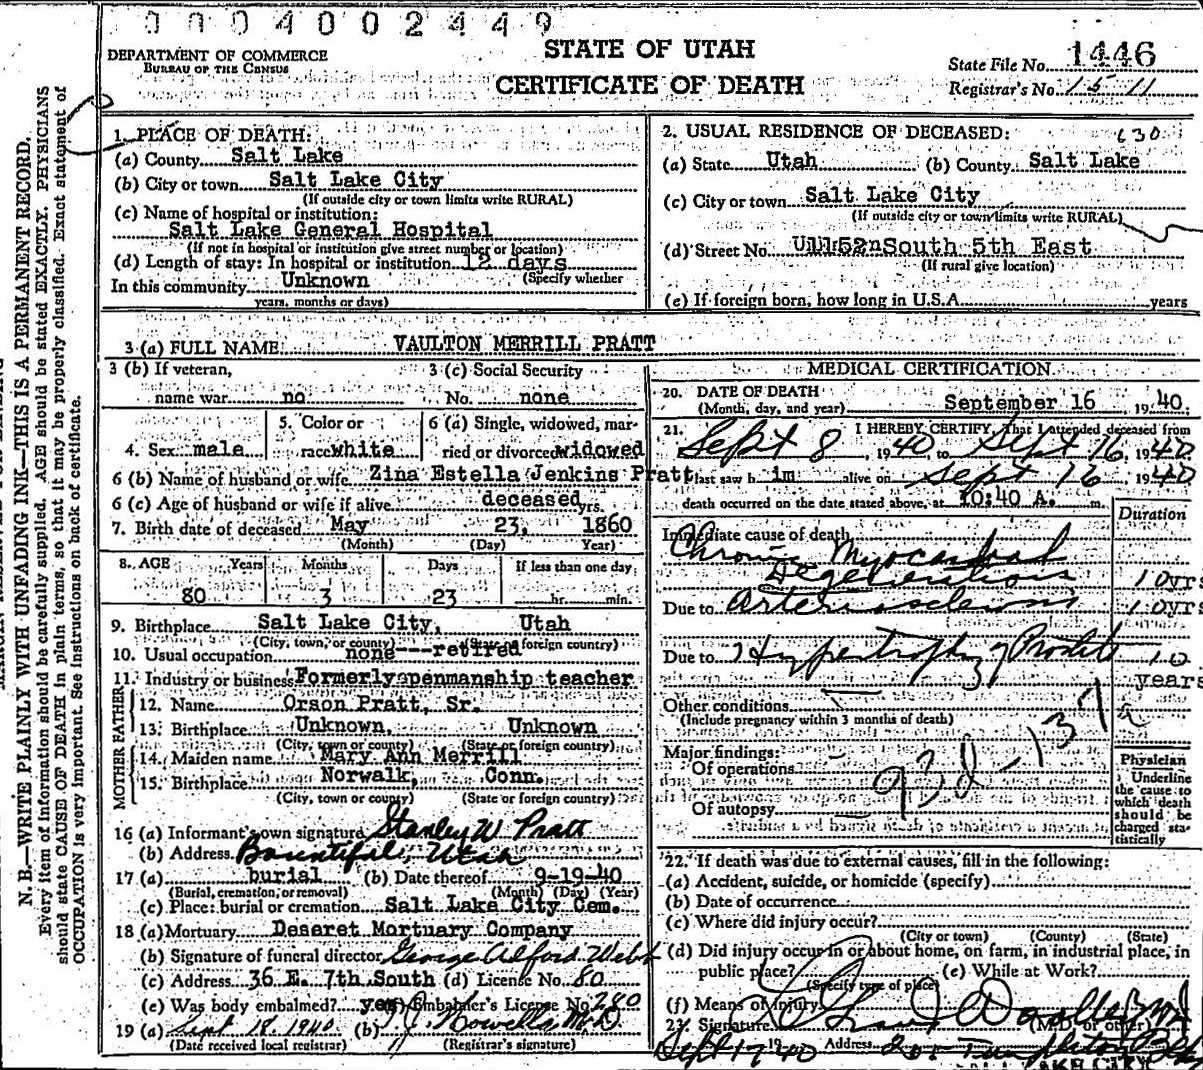 0004002449
DEPARTMENT OF COMMERCE
BUREAU OF THE CENSUS
STATE OF UTAH
CERTIFICATE OF DEATH
State File No. 1446
Registrar's No. 1511
N. B.—WRITE PLAINLY WITH UNFADING INK—THIS IS A PERMANENT RECORD.
Every item of information should be carefully supplied. AGE should be stated EXACTLY. PHYSICIANS
should state CAUSE OF DEATH in plain terms, so that it may be properly classified. Exact statement of
OCCUPATION is very important. See instructions on back of certificate.
1. PLACE OF DEATH:
(a) County Salt Lake
(b) City or town Salt Lake City
(If outside city or town limits write RURAL)
(c) Name of hospital or institution:
Salt Lake General Hospital
(If not in hospital or institution give street number or location)
(d) Length of stay: In hospital or institution 12 days
(Specify whether
In this community Unknown
years, months or days)
2. USUAL RESIDENCE OF DECEASED:
(a) State Utah (b) County Salt Lake
(c) City or town Salt Lake City
(If outside city or town limits write RURAL)
(d) Street No. South 5th East
(If rural give location)
(e) If foreign born, how long in U.S.A. years
3 (a) FULL NAME VAULTON MERRILL PRATT
3 (b) If veteran,
name war no
3 (c) Social Security
No. none
4. Sex male
5. Color or
race white
6 (a) Single, widowed, mar-
ried or divorced widowed
6 (b) Name of husband or wife Zina Estella Jenkins Pratt
6 (c) Age of husband or wife if alive deceased yrs.
7. Birth date of deceased May 23, 1860
(Month) (Day) Year)
8. AGE Years Months Days If less than one day
80 3 23 hr. min.
9. Birthplace Salt Lake City, Utah
(City, town, or county) (State or foreign country)
10. Usual occupation none---retired
11. Industry or business Formerly penmanship teacher
FATHER
12. Name Orson Pratt, Sr.
13. Birthplace Unknown, Unknown
(City, town or county) (State or foreign country)
MOTHER
14. Maiden name Mary Ann Merrill
15. Birthplace Norwalk, Conn.
(City, town or county) (State or foreign country)
16 (a) Informant's own signature Stanley W Pratt
(b) Address Bountiful, Utah
17 (a) burial (b) Date thereof 9-19-40
(Burial, cremation, or removal) (Month) (Day) (Year)
(c) Place: burial or cremation Salt Lake City Cem.
18 (a) Mortuary Deseret Mortuary Company
(b) Signature of funeral director George Alford Webb
(c) Address 36 E. 7th South (d) License No. 80
(e) Was body embalmed? yes Embalmer's License No. 280
19 (a) Sept. 18. 1940 (b)
(Date received local registrar) (Registrar's signature)
MEDICAL CERTIFICATION
20. DATE OF DEATH
(Month, day, and year) September 16 1940.
21. I HEREBY CERTIFY, That I attended deceased from
Sept 8, 1940, to Sept 16, 1940
last saw him alive on Sept 16 1940
death occurred on the date stated above, at 10:40 A. m.
Duration
Immediate cause of death
Chronic Myocardial
Degeneration 10yrs
Due to Arteriosclerosis 10yrs
Due to Hypertrophy of Prostate 10
years
Other conditions
(Include pregnancy within 3 months of death)
Major findings:
Of operations
Of autopsy
93d - 137
Physician
Underline
the cause to
which death
should be
charged sta-
tistically
22. If death was due to external causes, fill in the following:
(a) Accident, suicide, or homicide (specify)
(b) Date of occurrence
(c) Where did injury occur?
(City or town) (County) (State)
(d) Did injury occur in or about home, on farm, in industrial place, in
public place? (e) While at Work?
(Specify type of place)
(f) Means of Injury
Signature (M.D. or other)
Sept 17 1940 Address Templeton